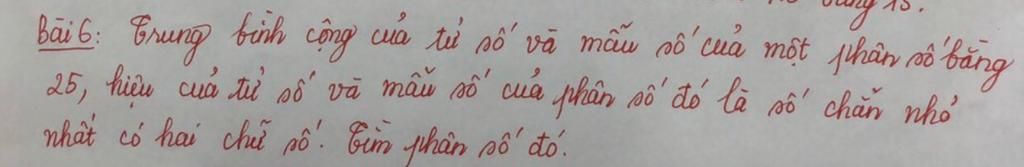 bằng 15.
Bài 6: Trung bình cộng của tử số và mẫu số của một phân số bằng
25, hiệu của tử số và mẫu số của phân số đó là số chẵn nhỏ
nhất có hai chữ số. Tìm phân số đó.